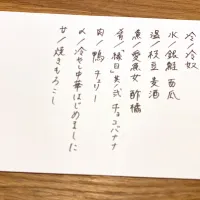 冷／冷奴
水／銀鮭 西瓜
温／枝豆 麦酒
魚／愛魚女 酢橘
／「縁日」其ノ弐 チョコバナナ
肉／鴨 チェリー
〆／冷やし中華はじめました
甘／焼きもろこし